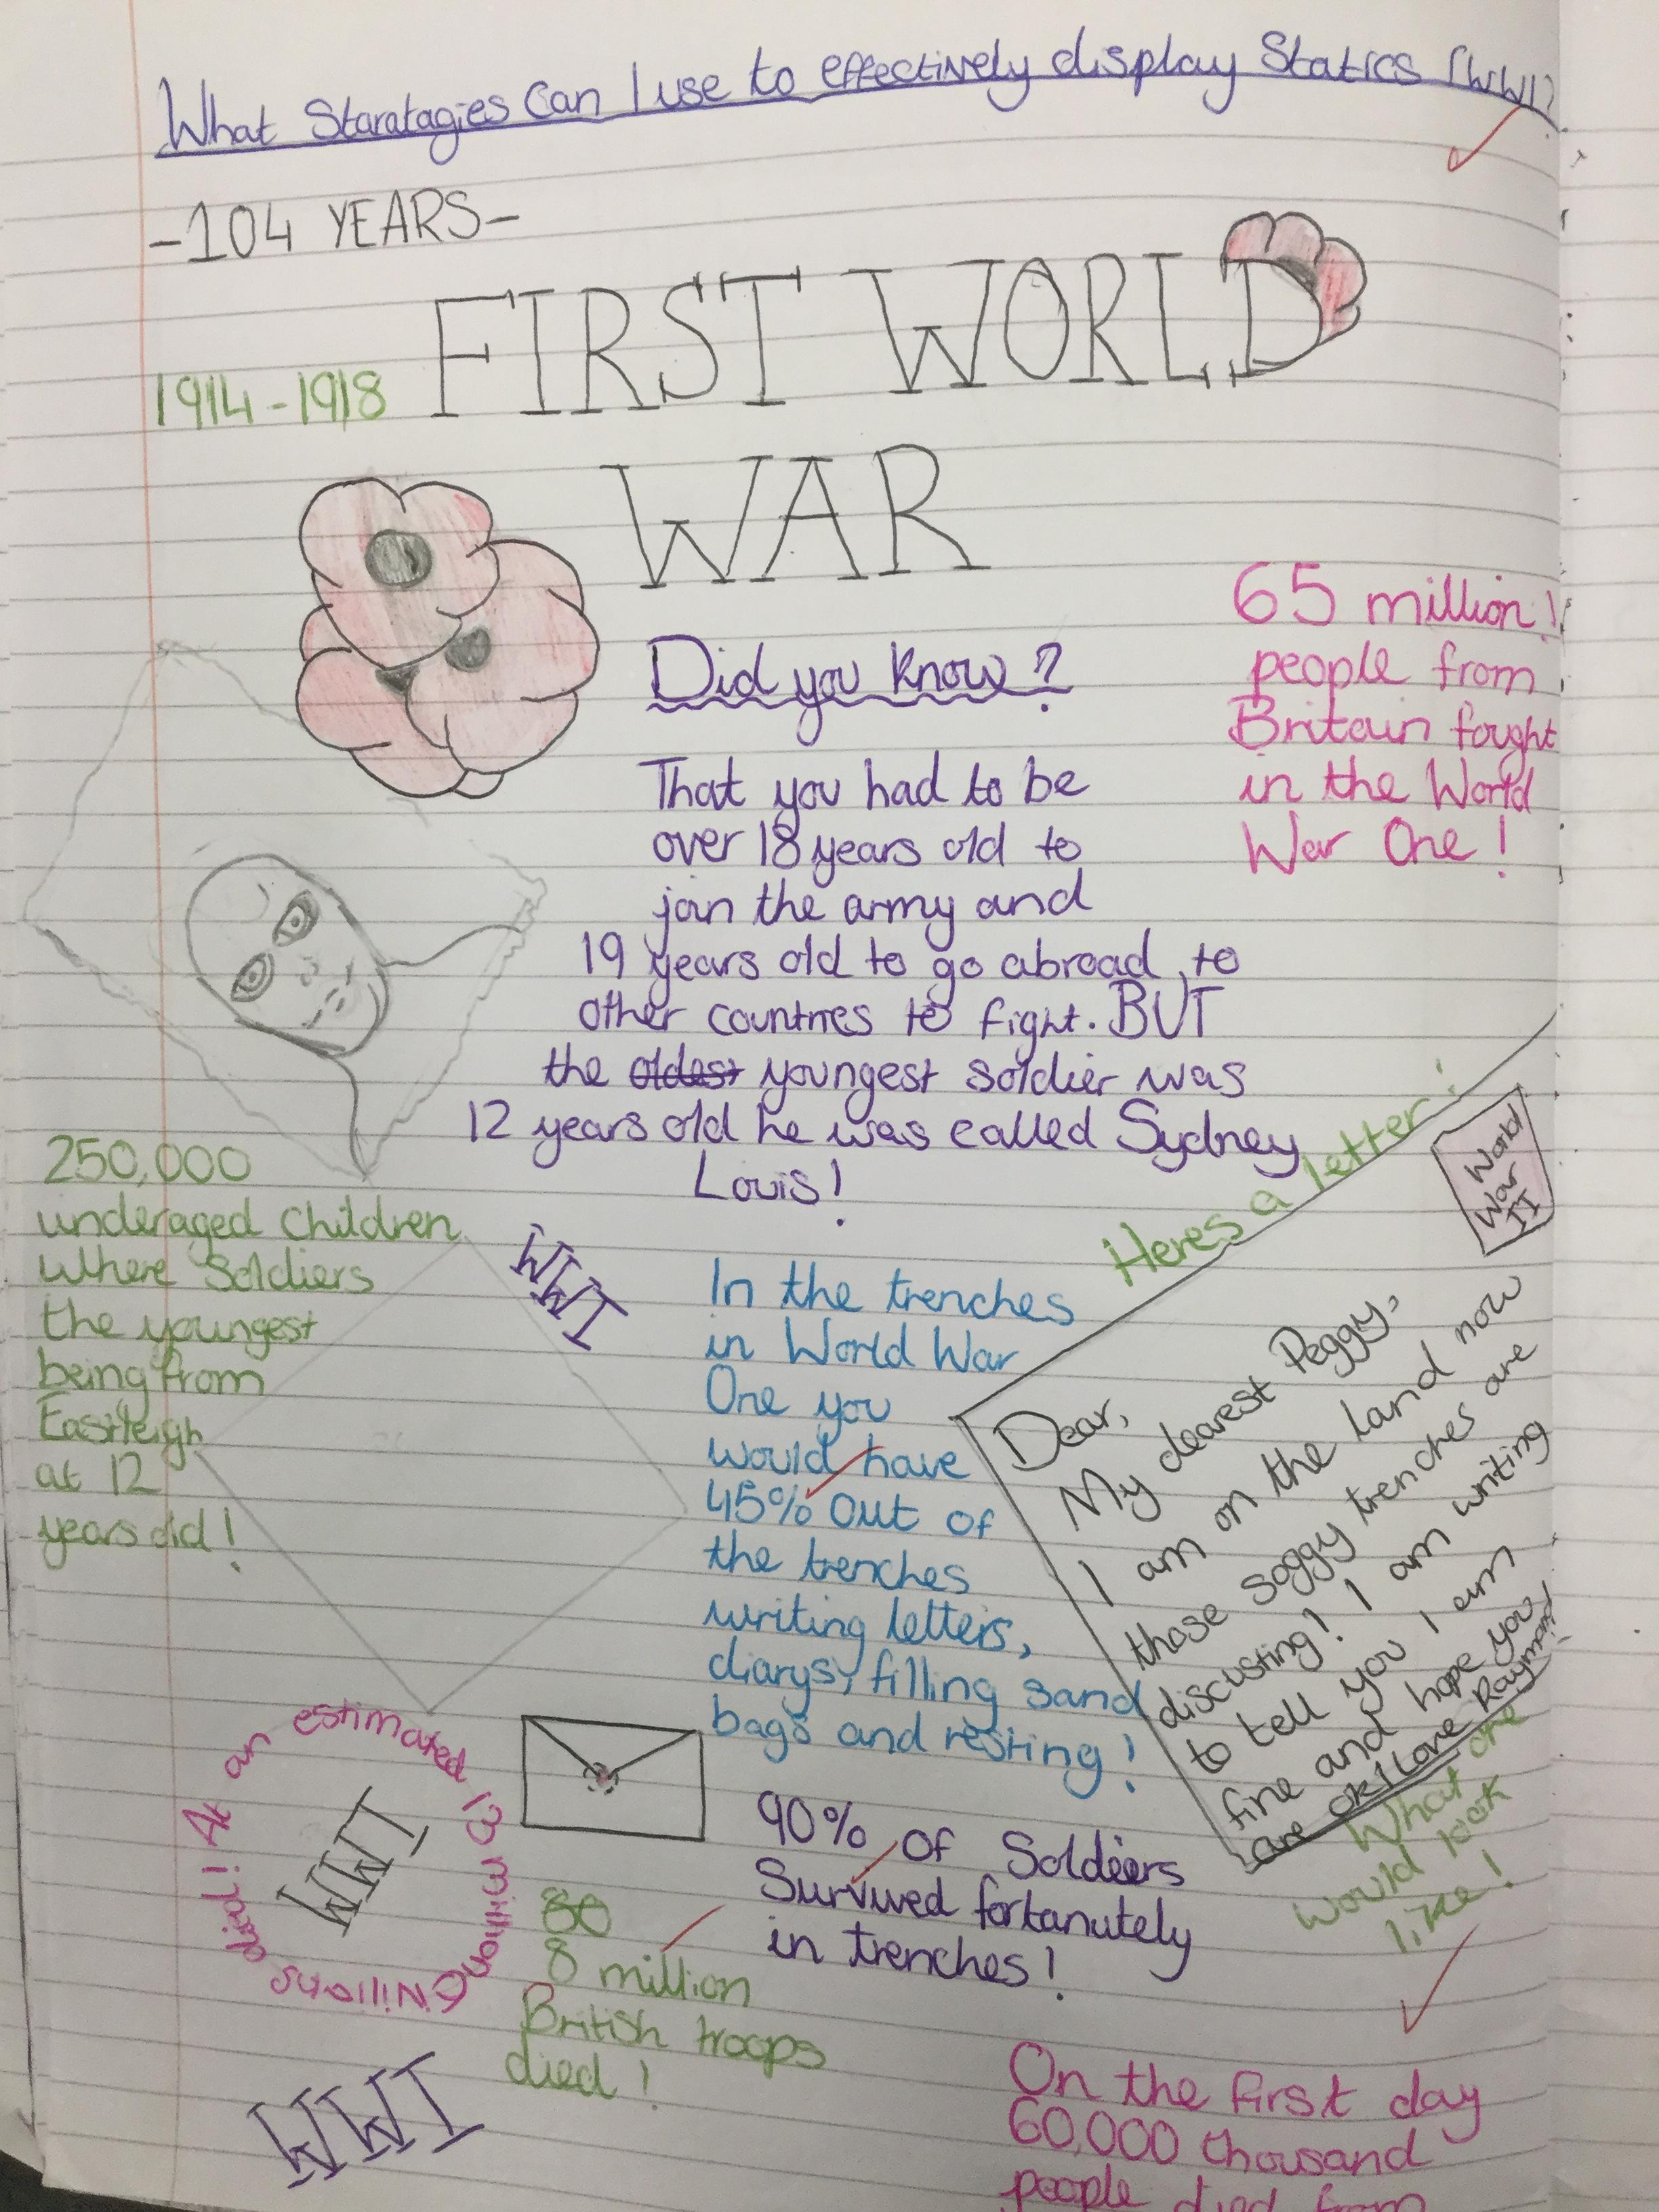 What Staratagies Can I use to effectively display Statics (WW1)?
-104 YEARS-
FIRST WORLD
1914-1918
WAR
65 million!
people from
Britain fought
in the World
War One!
Did you know?
That you had to be
over 18 years old to
join the army and
19 years old to go abroad, to
other countries to fight. BUT
the oldest youngest soldier was
12 years old he was called Sydney
Louis!
250,000
underaged Children
where Soldiers
the youngest
being from
Eastleigh
at 12
years old!
WWI
In the trenches
in World War
One you
would have
45% out of
the trenches
writing letters,
diarys, filling sand
bags and resting!
Heres a letter!
World
War
II
Dear,
My dearest Peggy,
I am on the land now
those soggy trenches are
discusting! I am writing
to tell you I am
fine and hope you
are ok! Love Raymond
What one
would look
like!
At an estimated 13 million Civilians died!
WWI
90% of Soldiers
Survived fortanutely
in trenches!
80
8 million
British troops
died!
WWI
On the first day
60,000 thousand
people died from